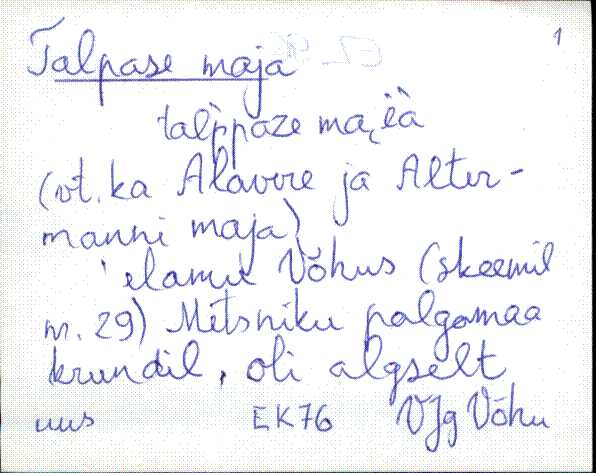 1
Talpase maja
talppaze maja
(vt. ka Alavere ja Alter-
manni maja)
'elamu Võhus (skeemil
nr. 29) Metsniku palgamaa
krundil, oli algselt
uus EK76 VJg Võhu